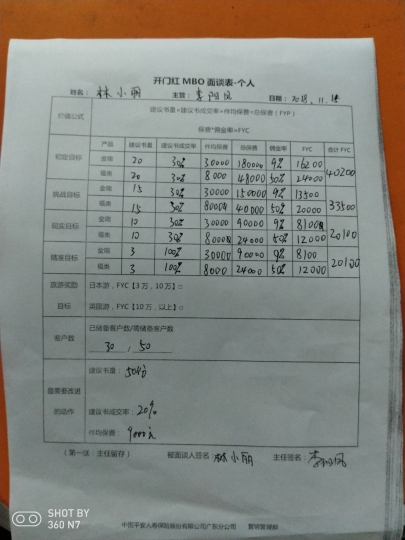 开门红MBO面谈表-个人
姓名: 林小丽 主管: 李阳凤 日期: 2018.11.18
价值公式 建议书量*建议书成交率*件均保费=总保费(FYP)
保费*佣金率=FYC
产品 建议书量 建议书成交率 件均保费 总保费 佣金率 FYC 合计FYC
金瑞 20 30% 30000 180000 9% 16200
福类 20 30% 8000 48000 50% 24000 40200
挑战目标 金瑞 15 30% 30000 150000 9% 13500
福类 15 30% 8000 40000 50% 20000 33500
金瑞 10 30% 30000 90000 9% 8100
福类 10 30% 8000 24000 50% 12000 20100
金瑞 3 100% 30000 90000 9% 8100
福类 3 100% 8000 24000 50% 12000 20100
旅游奖励 日本游,FYC【3万,10万】□
目标 英国游,FYC【10万,以上】□
客户数 已储备客户数/需储备客户数
30 , 50
建议书量: 50份
最需要改进
的动作 建议书成交率: 20%
件均保费: 9000元
(第一联:主任留存) 被面谈人签名: 林小丽 主任签名: 李阳凤
中国平安人寿保险股份有限公司广东分公司 营销管理部
SHOT BY
360 N7